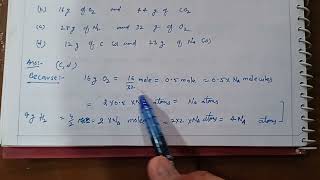 (b) 16 g O₂ and 44 g of CO₂
(c) 28 g of N₂ and 32 g of O₂
(d) 12 g of C (s) and 23 g of Na (s)
Ans:- (c, d)
Because:- 16 g O₂ = 16/32 mole = 0.5 mole = 0.5 × Nₐ molecules
= 2 × 0.5 × Nₐ atoms = Nₐ atoms
4 g H₂ = 4/2 = 2 × Nₐ = 2×2 × Nₐ atoms = 4Nₐ